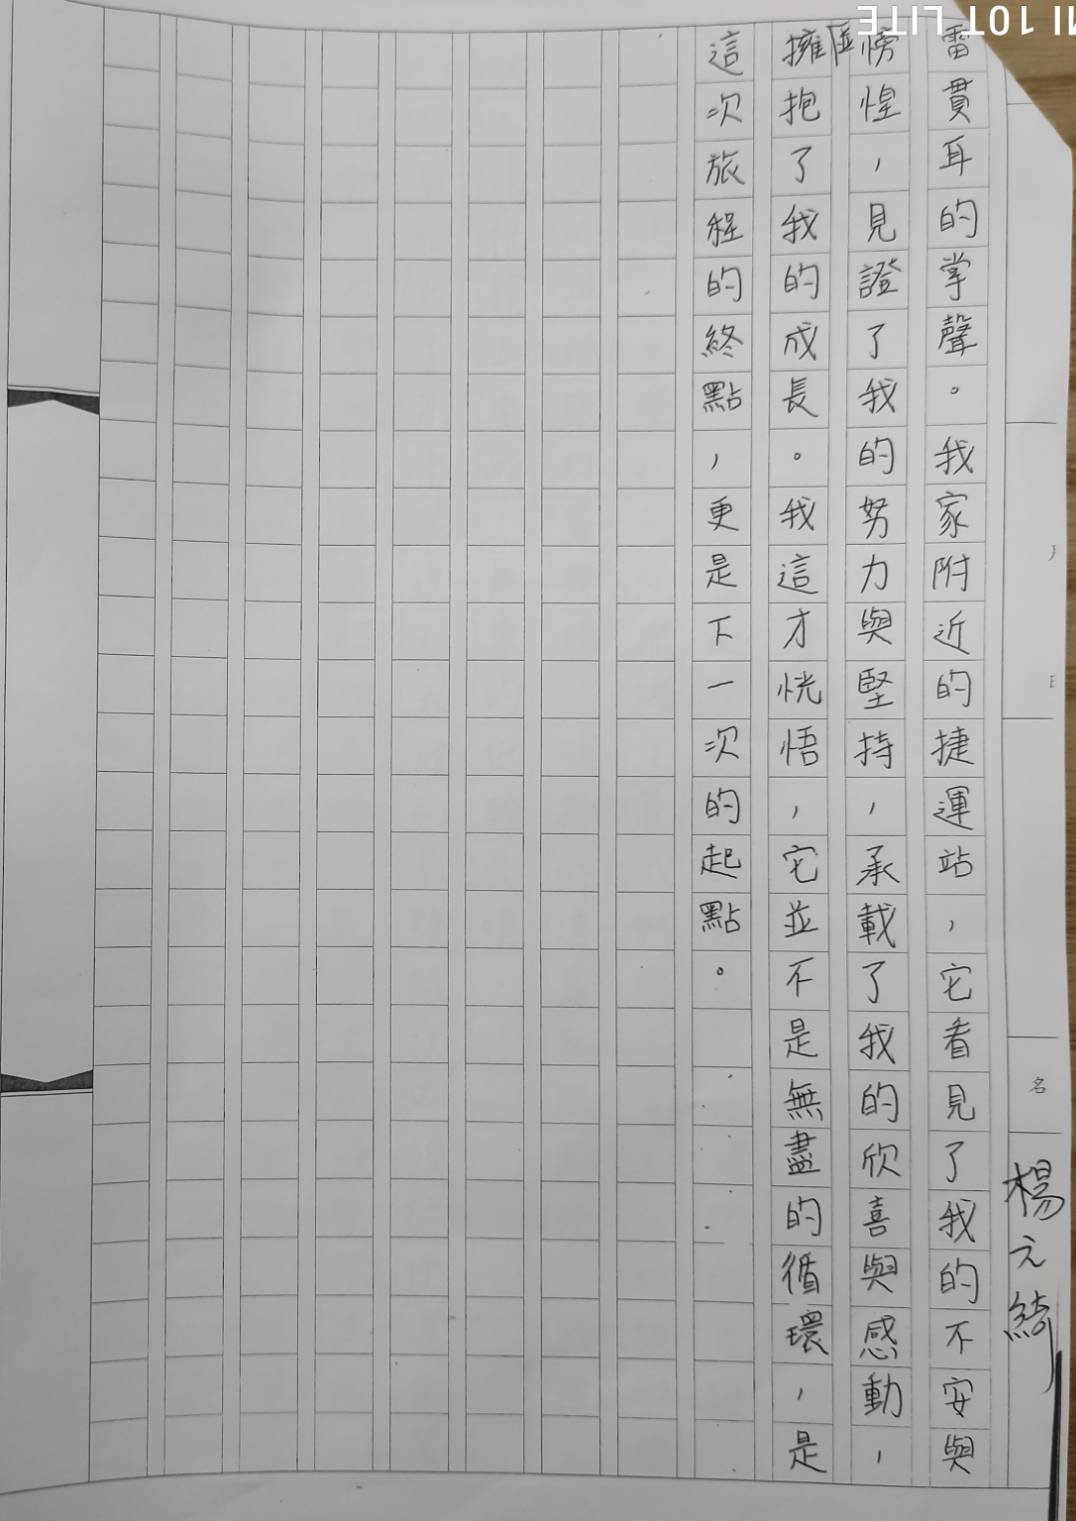 雷貫耳的掌聲。我家附近的捷運站，它看見了我的不安與
傍惶，見證了我的努力與堅持，承載了我的欣喜與感動，
擁抱了我的成長。我這才恍悟，它並不是無盡的循環，是
這次旅程的終點，更是下一次的起點。
名
楊元綺
MI 10T LITE